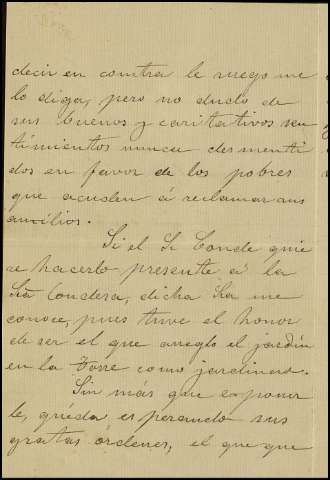 decir en contra le ruego me
lo diga, pero no dudo de
sus buenos y caritativos sen
timientos nunca desmenti
dos en favor de los pobres
que acuden á reclamar sus
auxilios.
Si el Sr Conde quie
re hacerlo presente á la
Sra Condesa, dicha Sra me
conoce, pues tuve el honor
de ser el que arreglo el jardin
en la Torre como jardinero.
Sin más que exponer
le, quéda esperando sus
gratas órdenes, el que que